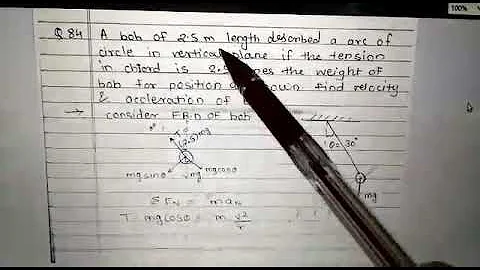 Q.84 A bob of 2.5 m length described a arc of
circle in vertical plane if the tension
in chord is 2.5 the weight of
bob for position find velocity
& accleration of
→ consider F.B.D OF bob
T = (2.5) mg
θ = 30°
mg sinθ mg mg cosθ
mg
Σ FN = m an
T - mg cosθ = m v²/r
100%